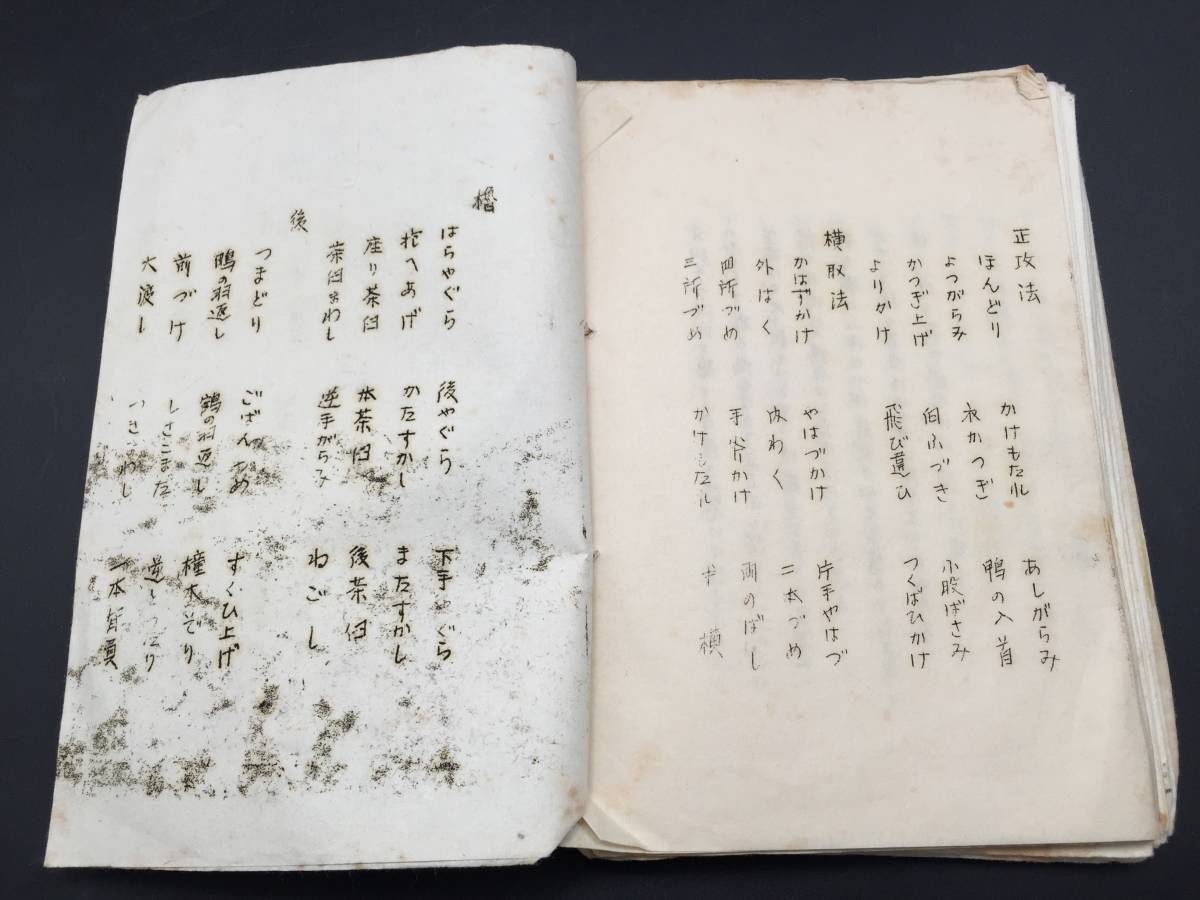 正攻法
ほんどり かけもたれ あしがらみ
よつがらみ 衣かつぎ 鴨の入首
かつぎ上げ 臼ふづき 小股ばさみ
よりかけ 飛び違ひ つくばひかけ
横取法
かはずかけ やはづかけ 片手やはづ
外はく 内わく 二本づめ
四所づめ 手斧かけ 両のばし
三所づめ かけもたれ 横
櫓
はらやぐら 後やぐら 下手 ぐら
抱へあげ かたすかし またすかし
座り茶臼 本茶臼 後茶臼
茶臼まわし 逆手がらみ ねごし
後
つまどり ごばんぜめ すくひ上げ
鴫の羽返し 鶴の羽返し 橦木ぞり
前づけ しきこまた 逆
大渡し 一本背負